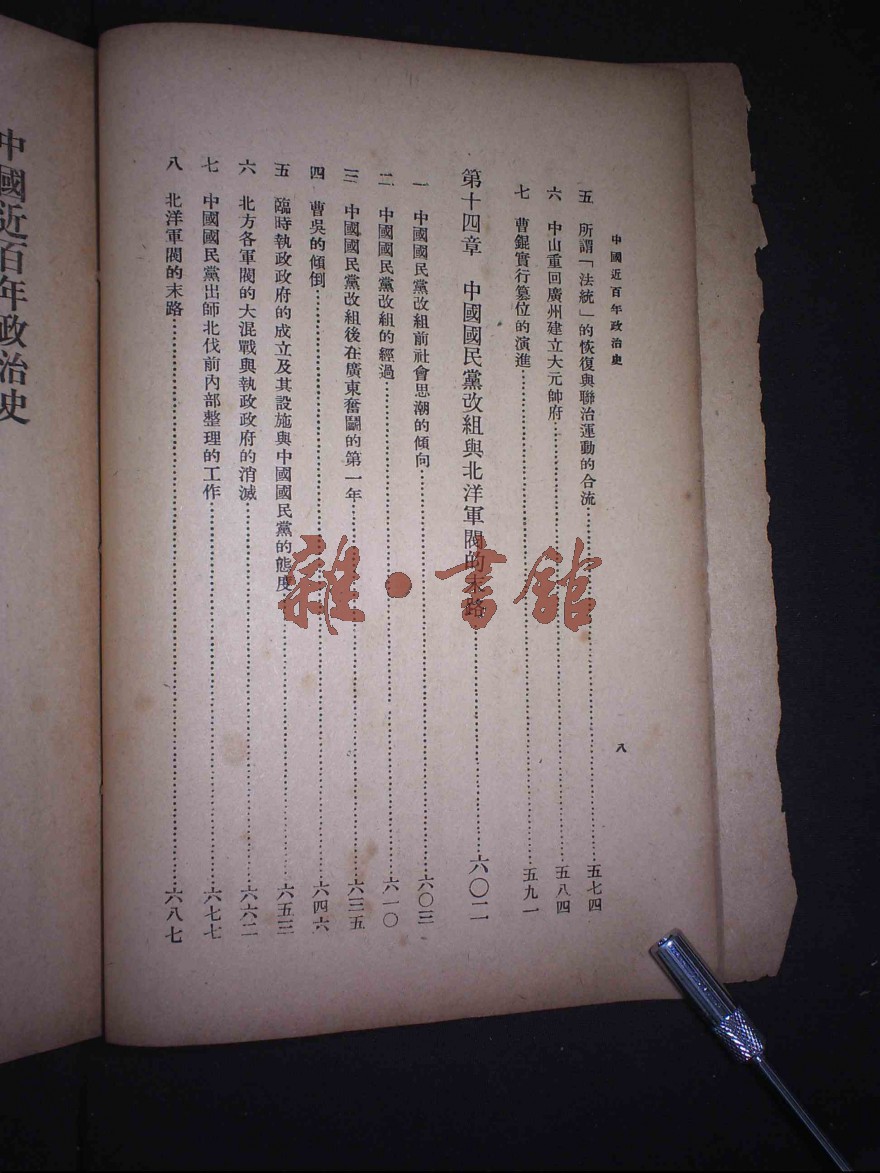 中國近百年政治史
八
五 所謂「法統」的恢復與聯治運動的合流……五七四
六 中山重回廣州建立大元帥府……五八四
七 曹錕實行篡位的演進……五九一
第十四章 中國國民黨改組與北洋軍閥的末路……六〇二
一 中國國民黨改組前社會思潮的傾向……六〇三
二 中國國民黨改組的經過……六一〇
三 中國國民黨改組後在廣東奮鬭的第一年……六三五
四 曹吳的傾倒……六四六
五 臨時執政政府的成立及其設施與中國國民黨的態度……六五三
六 北方各軍閥的大混戰與執政政府的消滅……六六二
七 中國國民黨出師北伐前內部整理的工作……六七七
八 北洋軍閥的末路……六八七
中國近百年政治史
雜·書館